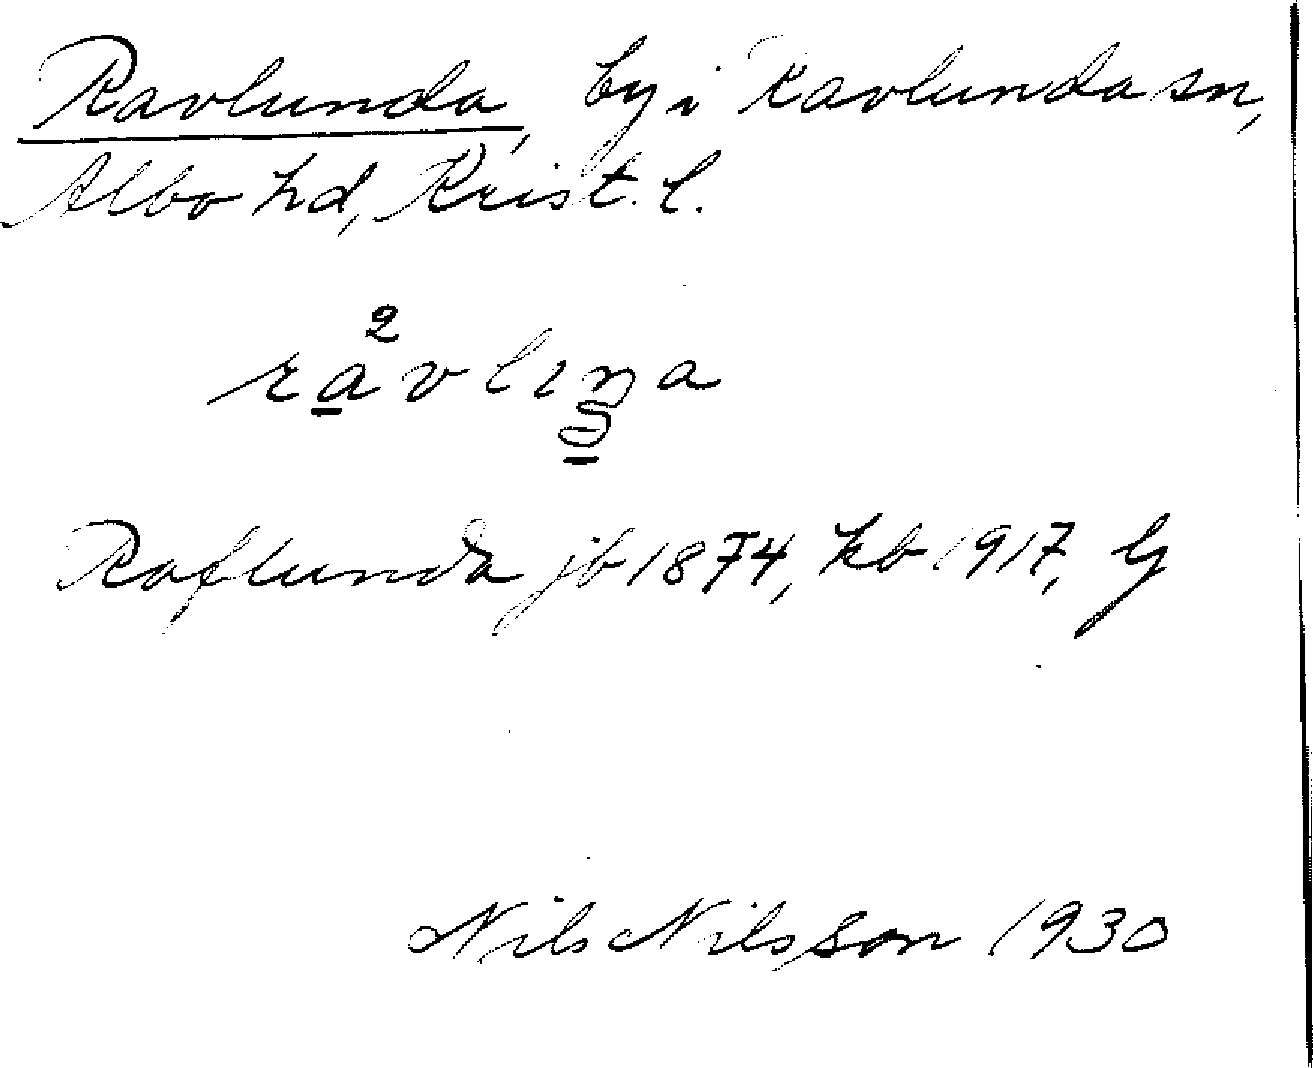 Ravlunda, by i Ravlunda sn,
Albo hd, Krist. l.
Raflunda jb 1874, kb 1917, G
Nils Nilsson 1930